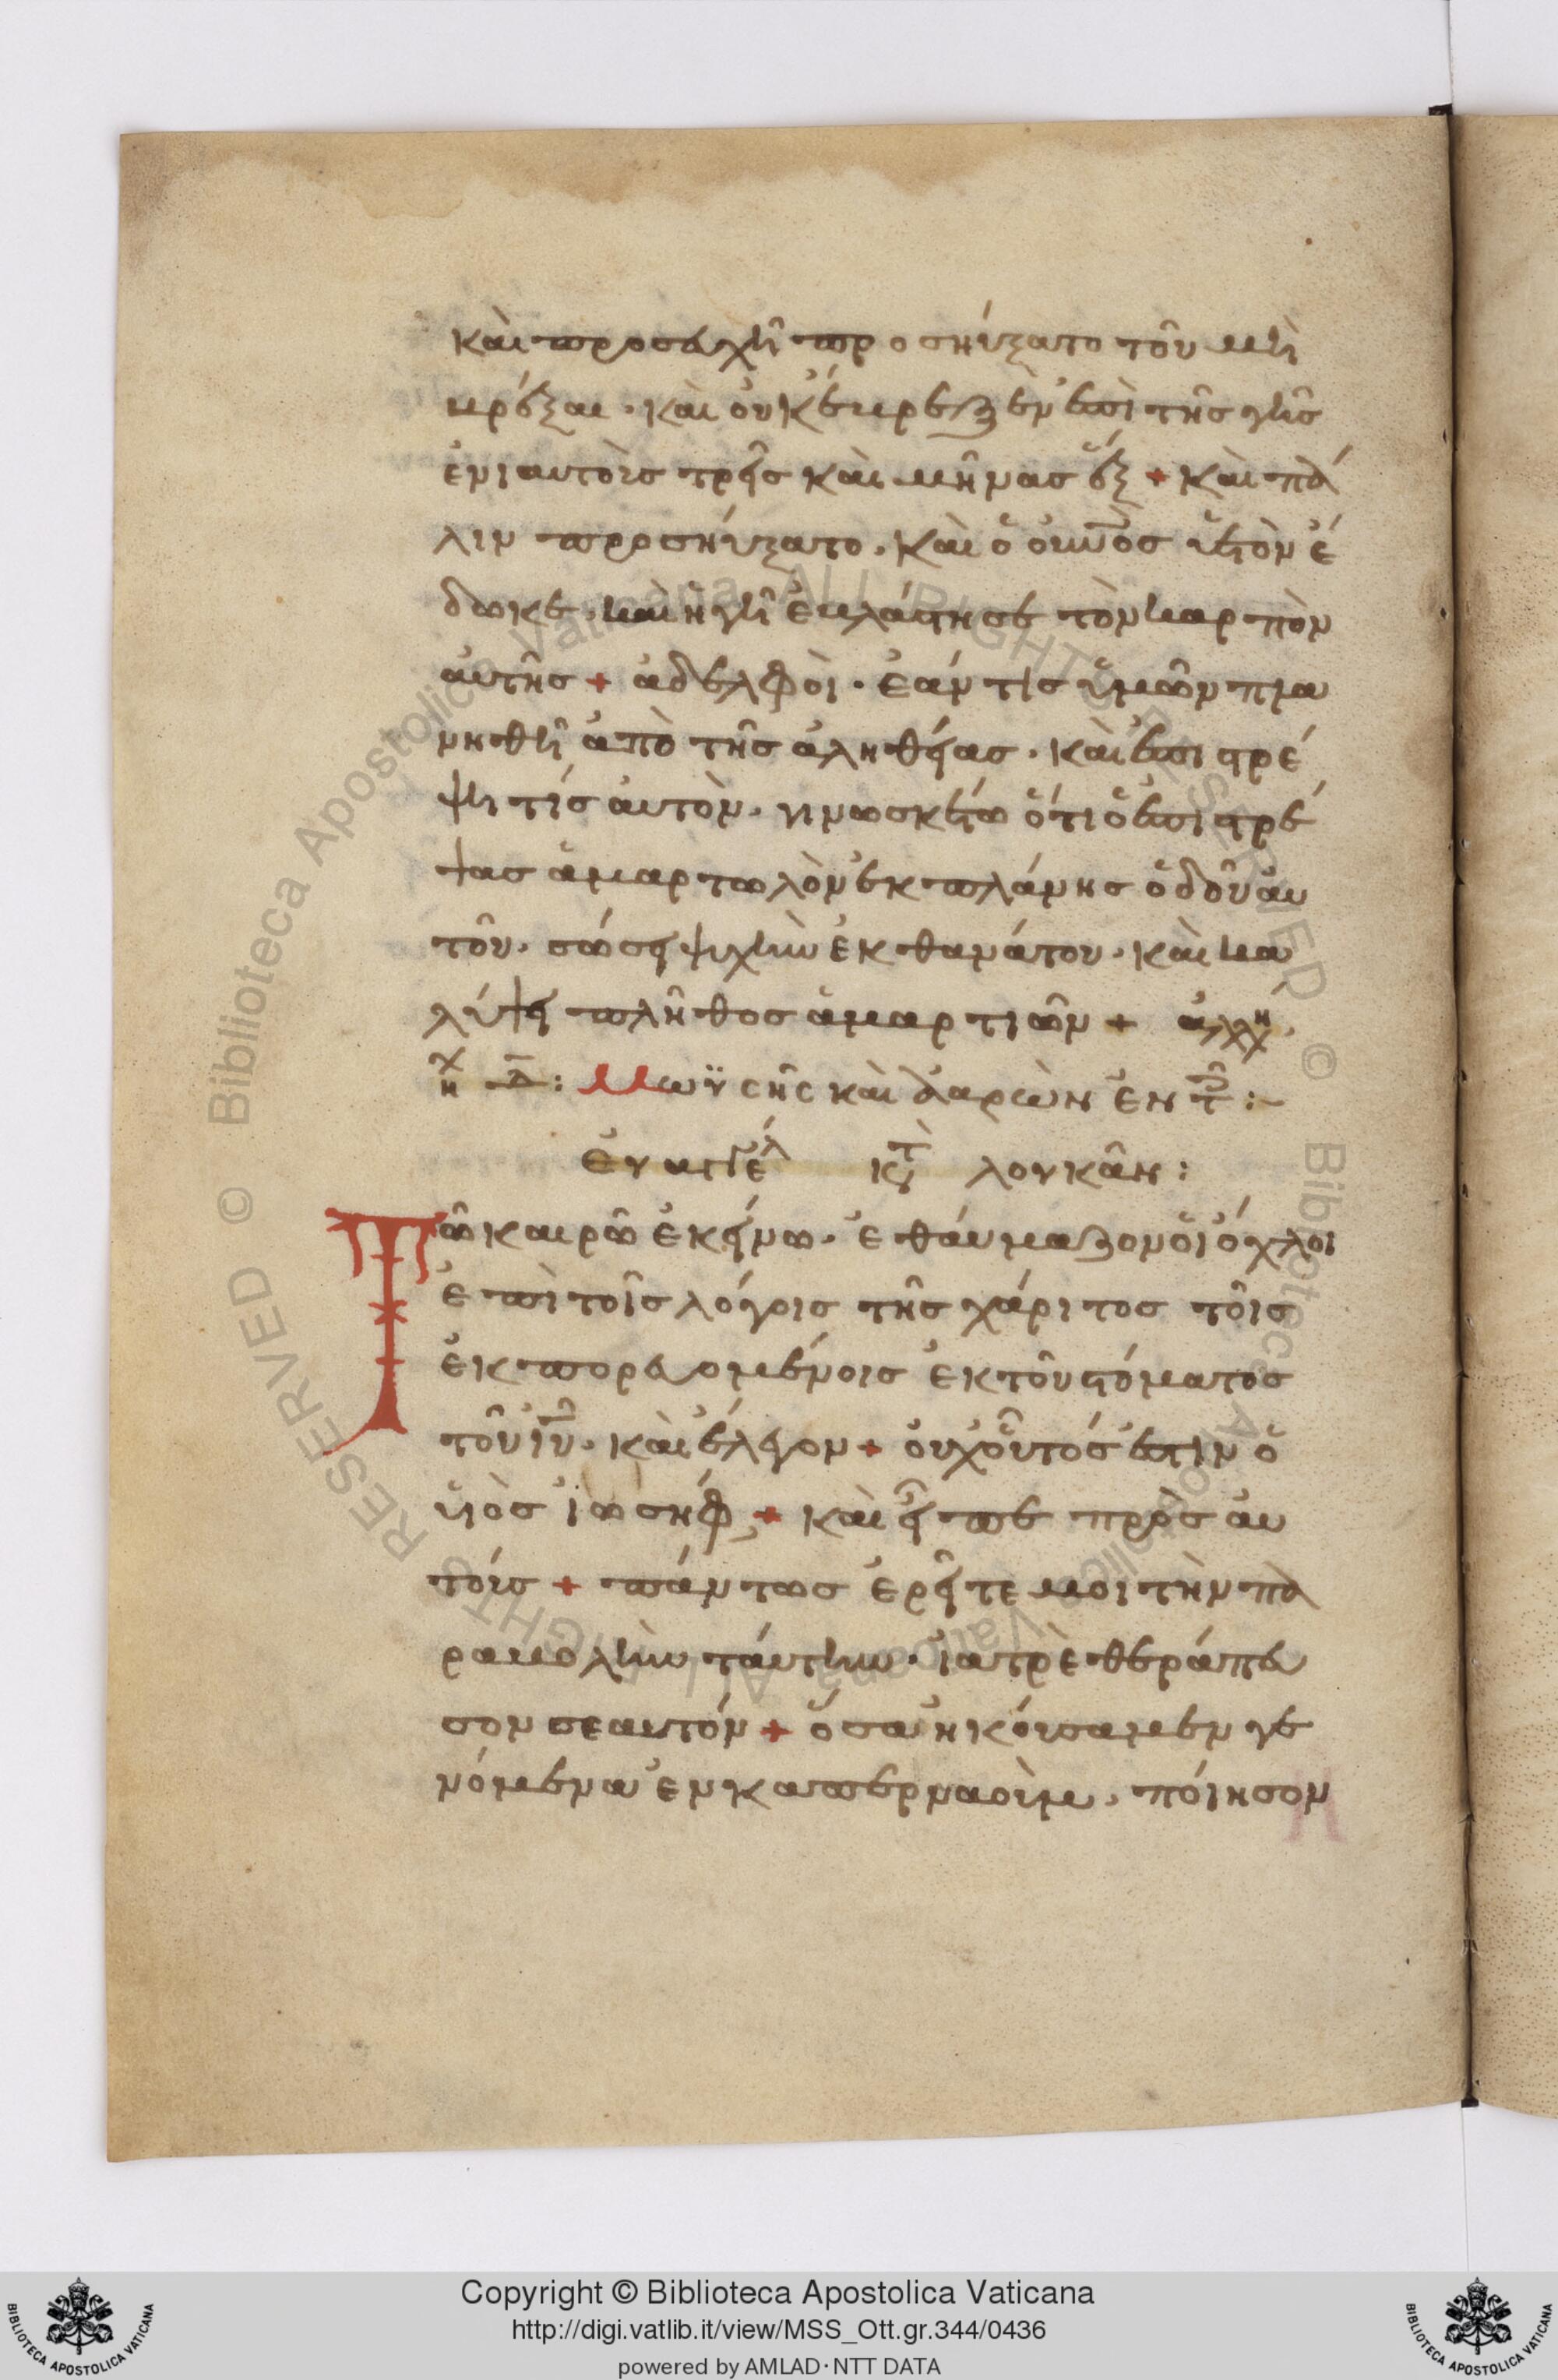 καὶ προσευχῆ προσηύξατο τοῦ μὴ
βρέξαι · καὶ οὐκ ἔβρεξεν ἐπὶ τῆς γῆς
ἐνιαυτοὺς τρεῖς καὶ μῆνας ἕξ + καὶ πά
λιν προσηύξατο · καὶ ὁ οὐνὸς ὑετὸν ἔ
δωκε · καὶ ἡ γῆ ἐβλάστησε τὸν καρπὸν
αὐτῆς + ἀδελφοὶ · ἐάν τις ὑμῶν πλα
νηθῆ ἀπὸ τῆς ἀληθείας · καὶ ἐπιστρέ
ψη τίς αὐτὸν · γινωσκέτω ὅτι ὁ ἐπιστρέ
ψας ἁμαρτωλὸν ἐκ πλάνης ὁδοῦ αὐ
τοῦ · σώσει ψυχὴν ἐκ θανάτου · καὶ κα
λύψει πλῆθος ἁμαρτιῶν + ἀλλη
ηχ δ : Μωϋσῆς καὶ ἀαρὼν ἐν τ :~
Εὐαγγέλ κτ λουκᾶν :
Τῶ καιρῶ ἐκείνω · ἐθαύμαζον οἱ ὄχλοι
ἐπὶ τοῖς λόγοις τῆς χάριτος τοῖς
ἐκπορευομένοις ἐκ τοῦ στόματος
τοῦ ἰῦ · καὶ ἔλεγον + οὐχ οὗτός ἐστιν ὁ
υἱὸς ἰωσήφ + καὶ εἶπε πρὸς αὐ
τούς + πάντως ἐρεῖτε μοι τὴν πα
ραβολὴν ταύτην · ἰατρὲ θεράπευ
σον σεαυτόν + ὅσα ἠκούσαμεν γε
νόμενα ἐν καπερναοὺμ · ποίησον
Copyright © Biblioteca Apostolica Vaticana
http://digi.vatlib.it/view/MSS_Ott.gr.344/0436
powered by AMLAD · NTT DATA